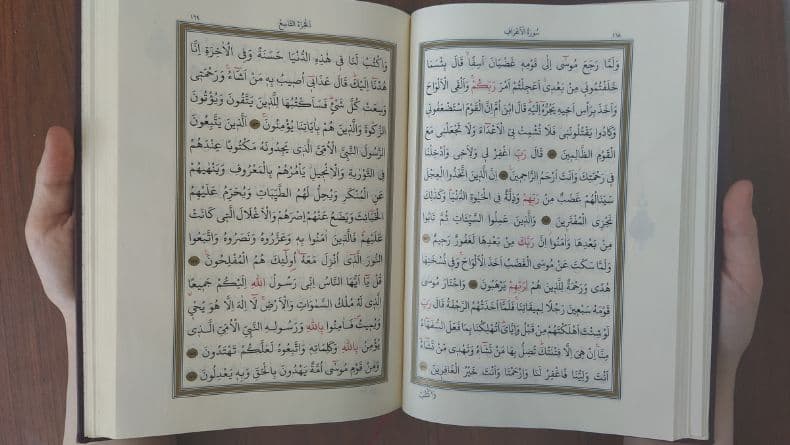 ١٦٨ سُورَةُ الْأَعْرَافِ
وَلَمَّا رَجَعَ مُوسَى إِلَى قَوْمِهِ غَضْبَانَ اَسِفًا قَالَ بِئْسَمَا
خَلَفْتُمُونِى مِنْ بَعْدِى اَعَجِلْتُمْ اَمْرَ رَبِّكُمْ وَاَلْقَى الْاَلْوَاحَ
وَاَخَذَ بِرَأْسِ اَخِيهِ يَجُرُّهُ اِلَيْهِ قَالَ ابْنَ اُمَّ اِنَّ الْقَوْمَ اسْتَضْعَفُونِى
وَكَادُوا يَقْتُلُونَنِى فَلَا تُشْمِتْ بِىَ الْاَعْدَاءَ وَلَا تَجْعَلْنِى مَعَ
الْقَوْمِ الظَّالِمِينَ قَالَ رَبِّ اغْفِرْ لِى وَلِاَخِى وَاَدْخِلْنَا
فِى رَحْمَتِكَ وَاَنْتَ اَرْحَمُ الرَّاحِمِينَ اِنَّ الَّذِينَ اتَّخَذُوا الْعِجْلَ
سَيَنَالُهُمْ غَضَبٌ مِنْ رَبِّهِمْ وَذِلَّةٌ فِى الْحَيٰوةِ الدُّنْيَا وَكَذٰلِكَ
نَجْزِى الْمُفْتَرِينَ وَالَّذِينَ عَمِلُوا السَّيِّئَاتِ ثُمَّ تَابُوا
مِنْ بَعْدِهَا وَاٰمَنُوا اِنَّ رَبَّكَ مِنْ بَعْدِهَا لَغَفُورٌ رَحِيمٌ
وَلَمَّا سَكَتَ عَنْ مُوسَى الْغَضَبُ اَخَذَ الْاَلْوَاحَ وَفِى نُسْخَتِهَا
هُدًى وَرَحْمَةٌ لِلَّذِينَ هُمْ لِرَبِّهِمْ يَرْهَبُونَ وَاخْتَارَ مُوسٰى
قَوْمَهُ سَبْعِينَ رَجُلًا لِمِيقَاتِنَا فَلَمَّا اَخَذَتْهُمُ الرَّجْفَةُ قَالَ رَبِّ
لَوْ شِئْتَ اَهْلَكْتَهُمْ مِنْ قَبْلُ وَاِيَّاىَ اَتُهْلِكُنَا بِمَا فَعَلَ السُّفَهَاءُ
مِنَّا اِنْ هِىَ اِلَّا فِتْنَتُكَ تُضِلُّ بِهَا مَنْ تَشَاءُ وَتَهْدِى مَنْ تَشَاءُ
اَنْتَ وَلِيُّنَا فَاغْفِرْ لَنَا وَارْحَمْنَا وَاَنْتَ خَيْرُ الْغَافِرِينَ
وَاكْتُبْ
اَلْجُزْءُ التَّاسِعُ ١٦٩
وَاكْتُبْ لَنَا فِى هٰذِهِ الدُّنْيَا حَسَنَةً وَفِى الْاٰخِرَةِ اِنَّا
هُدْنَا اِلَيْكَ قَالَ عَذَابِى اُصِيبُ بِهِ مَنْ اَشَاءُ وَرَحْمَتِى
وَسِعَتْ كُلَّ شَىْءٍ فَسَاَكْتُبُهَا لِلَّذِينَ يَتَّقُونَ وَيُؤْتُونَ
الزَّكٰوةَ وَالَّذِينَ هُمْ بِاٰيَاتِنَا يُؤْمِنُونَ اَلَّذِينَ يَتَّبِعُونَ
الرَّسُولَ النَّبِىَّ الْاُمِّىَّ الَّذِى يَجِدُونَهُ مَكْتُوبًا عِنْدَهُمْ
فِى التَّوْرٰيةِ وَالْاِنْجِيلِ يَأْمُرُهُمْ بِالْمَعْرُوفِ وَيَنْهٰيهُمْ
عَنِ الْمُنْكَرِ وَيُحِلُّ لَهُمُ الطَّيِّبَاتِ وَيُحَرِّمُ عَلَيْهِمُ
الْخَبَائِثَ وَيَضَعُ عَنْهُمْ اِصْرَهُمْ وَالْاَغْلَالَ الَّتِى كَانَتْ
عَلَيْهِمْ فَالَّذِينَ اٰمَنُوا بِهِ وَعَزَّرُوهُ وَنَصَرُوهُ وَاتَّبَعُوا
النُّورَ الَّذِى اُنْزِلَ مَعَهُ اُولٰئِكَ هُمُ الْمُفْلِحُونَ
قُلْ يَا اَيُّهَا النَّاسُ اِنِّى رَسُولُ اللّٰهِ اِلَيْكُمْ جَمِيعًا
الَّذِى لَهُ مُلْكُ السَّمٰوَاتِ وَالْاَرْضِ لَا اِلٰهَ اِلَّا هُوَ يُحْيِى
وَيُمِيتُ فَاٰمِنُوا بِاللّٰهِ وَرَسُولِهِ النَّبِىِّ الْاُمِّىِّ الَّذِى
يُؤْمِنُ بِاللّٰهِ وَكَلِمَاتِهِ وَاتَّبِعُوهُ لَعَلَّكُمْ تَهْتَدُونَ
وَمِنْ قَوْمِ مُوسٰى اُمَّةٌ يَهْدُونَ بِالْحَقِّ وَبِهِ يَعْدِلُونَ